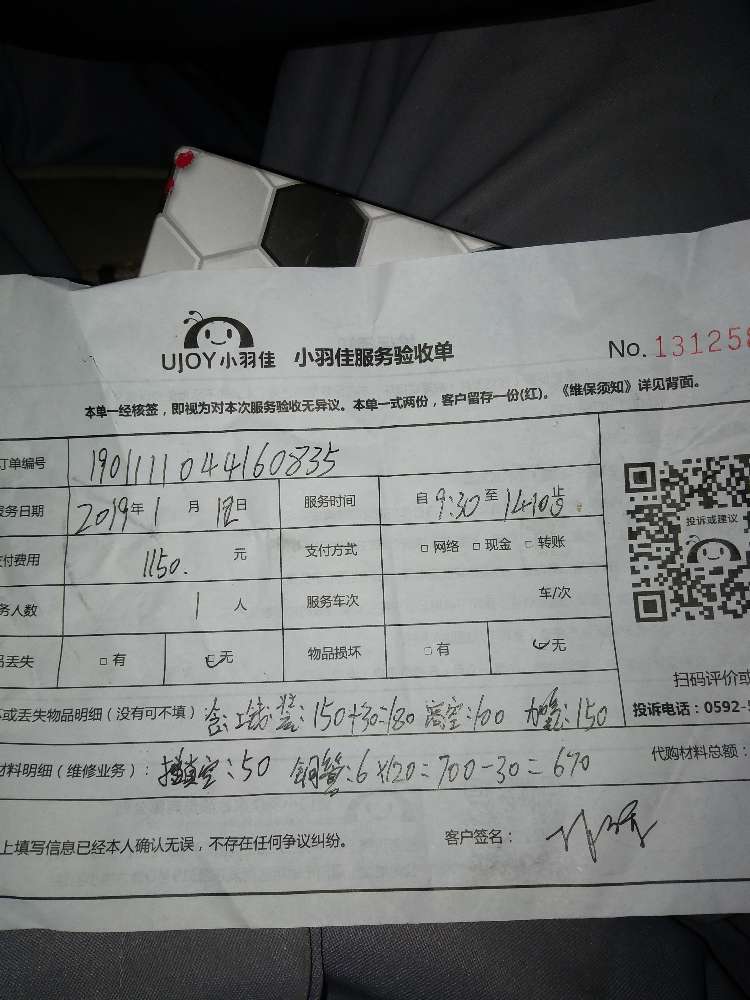 UJOY小羽佳 小羽佳服务验收单 No. 131258
本单一经核签，即视为对本次服务验收无异议。本单一式两份，客户留存一份(红)。《维保须知》详见背面。
订单编号 190111044160835
务日期 2019年 1 月 12日 服务时间 自 9:30 至 14:10 止
付费用 1150. 元 支付方式 □ 网络 □ 现金 □ 转账
务人数 1 人 服务车次 车/次
丢失 □ 有 □ 无 物品损坏 □ 有 □ 无
投诉或建议
扫码评价或
投诉电话：0592-5
或丢失物品明细（没有可不填） 含: 装: 150+30=180 高空:100 150
材料明细（维修业务）: 抽真空:50 铜管:6×120=700-30=670 代购材料总额：
上填写信息已经本人确认无误，不存在任何争议纠纷。 客户签名：